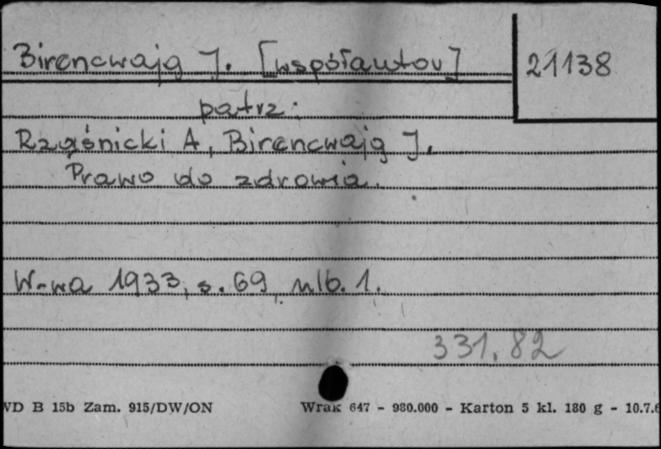 Birencwajg J. [współautor]
21138
patrz:
Rząśnicki A, Birencwajg J.
Prawo do zdrowia.
W-wa 1933, s. 69, nlb. 1.
331.82
WD B 15b Zam. 915/DW/ON
Wrak 647 - 980.000 - Karton 5 kl. 180 g - 10.7.6